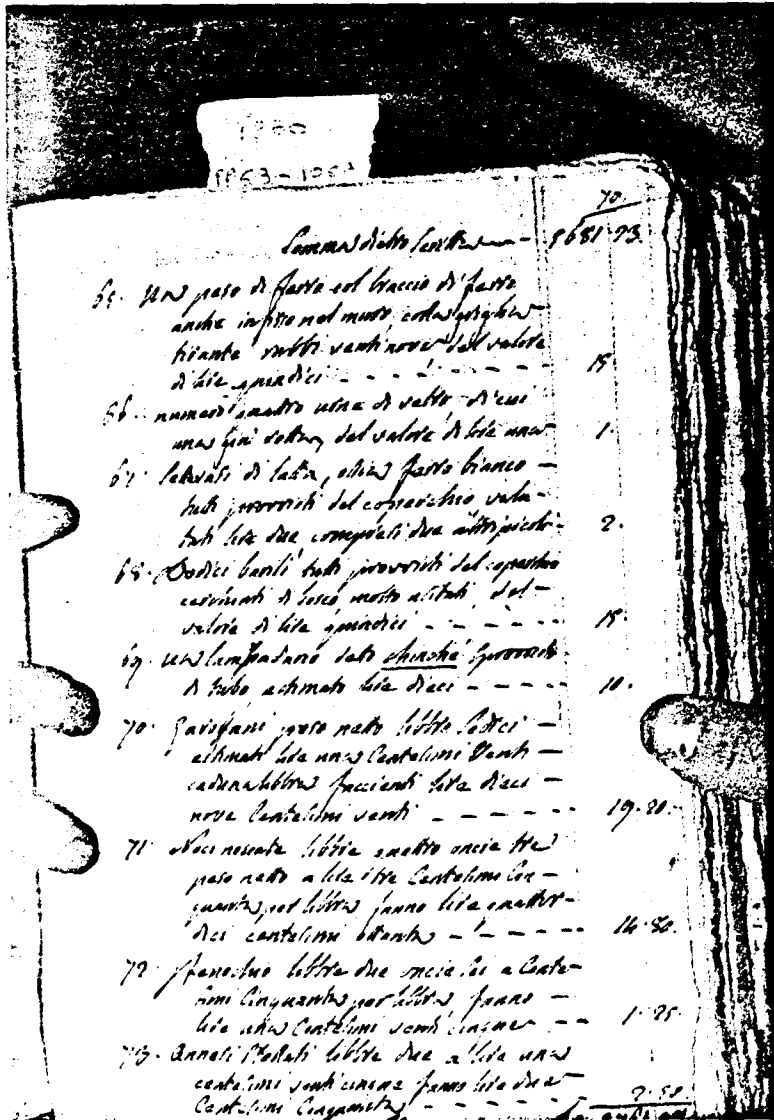 1863-
70.
Somma dietro scritta - 8681.23.
65. Un peso di ferro col braccio di ferro
anche infisso nel muro colla
tirante rubbi venti nove del valore
di lire quindici - - - - - 15.
66. numero quattro urne di vetro di cui
una già rotta, del valore di lire una 1.
67. di latta, ossia ferro bianco -
tutti provvisti del coperchio valu-
tati lire due compresi due altri piccoli - 2.
68. Dodici barili tutti provvisti del coperchio
di bosco molto usitati del
valore di lire quindici - - - - 15.
69. Un lampadario detto chinché provvisto
di tubo estimato lire dieci - - - - 10.
70. Garofani peso netto libbre sedici -
estimati lire una Centesimi Venti -
caduna libbra facienti lire dieci -
nove Centesimi venti - - - - - 19.20.
71. Noci moscate libbre quattro oncie tre
peso netto a lire tre Centesimi Cin-
quanta per libbra fanno lire quattor-
dici centesimi ottanta - - - - - 14.80.
72. libbre due oncie sei a Cente-
simi Cinquanta per libbra fanno -
lire una Centesimi venti cinque - - 1.25.
73. Annesi Stellati libbre due a lire una
centesimi venti cinque fanno lire due
Centesimi Cinquanta - - - - 2.50